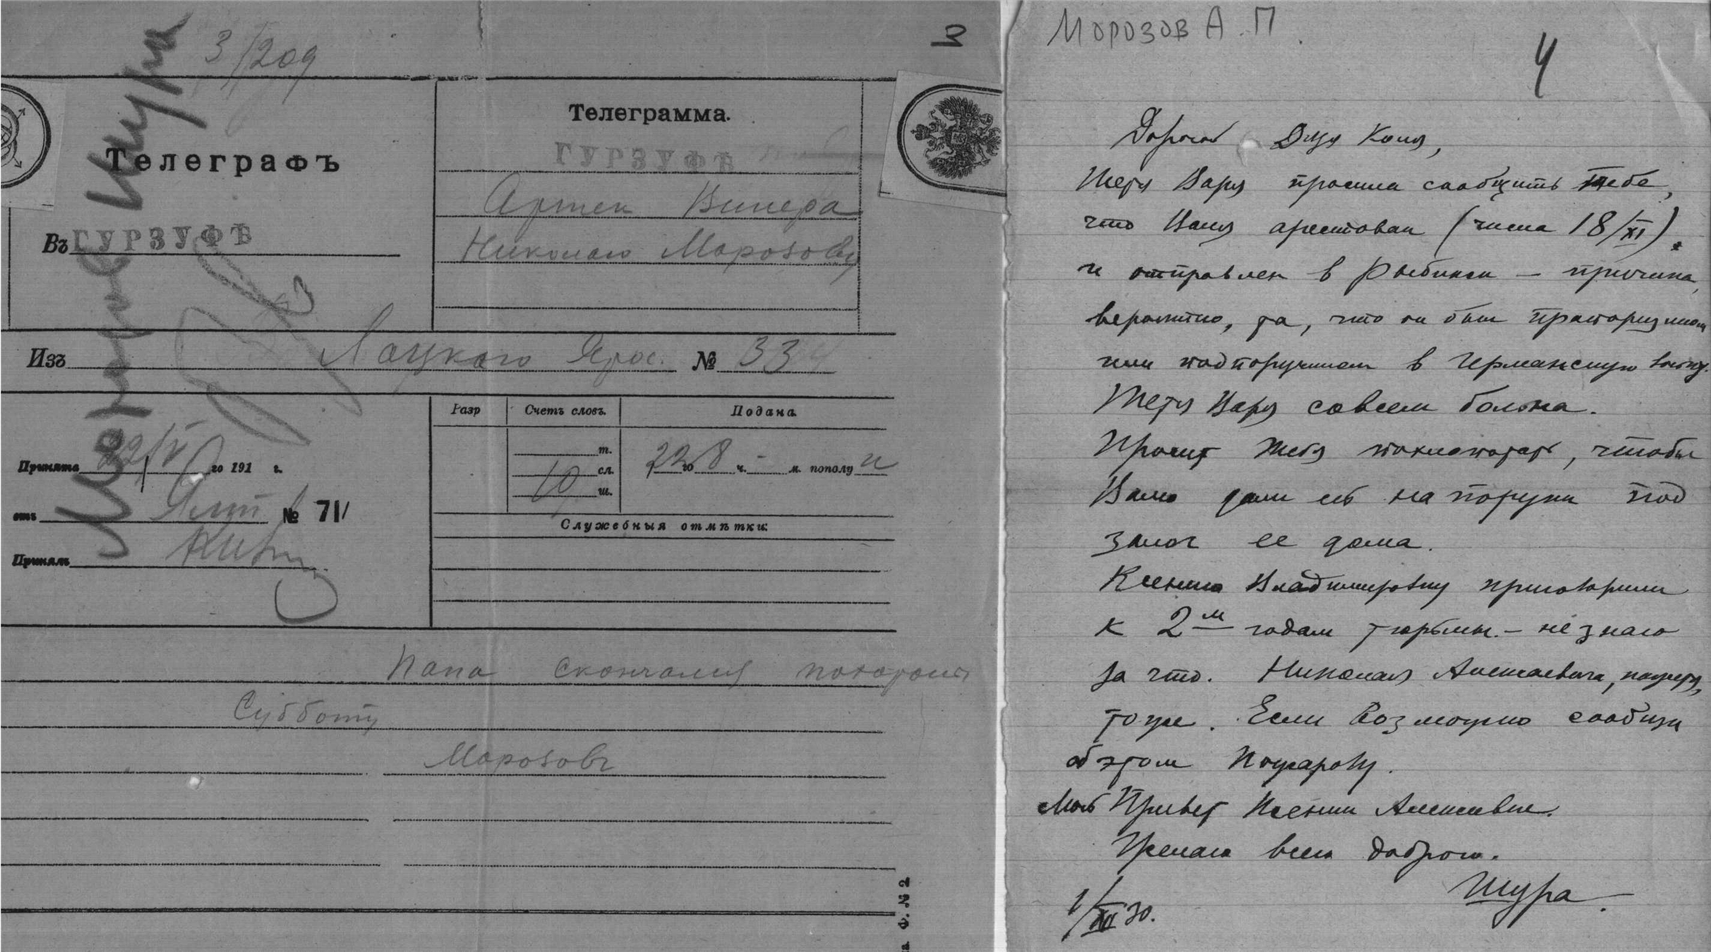 3/209
3
Телеграфъ
Въ ГУРЗУФЪ
Телеграмма.
ГУРЗУФЪ
Артек Винера
Николаю Морозову
Изъ Лацкаго Ярос. № 33
Принята 22/V го 191 г.
отъ Ялт № 71/
Принялъ
Разр
Счетъ словъ.
Подана
т.
10 сл.
ш.
22 го 8 ч. - м. пополу н
Служебныя отмѣтки:
Папа скончался похороны
Субботу
Морозовъ
Ф. № 2
Морозов Шура
Морозов А. П.
4
Дорогой Дядя Коля,
Тетя Варя просила сообщить тебе,
что Ваня арестован (числа 18/XI)
и отправлен в Рыбинск – причина,
вероятно, та, что он был прапорщиком
или подпоручиком в Германскую войну.
Тетя Варя совсем больна.
Просит тебя похлопотать, чтобы
Ваню дали ей на поруки под
залог ее дома.
Ксению Владимировну приговорили
к 2м годам тюрьмы. – не знаю
за что. Николая Алексеевича, кажется,
тоже. Если возможно сообщи
об этом Пожарову.
Мой Привет Ксении Алексеевне.
Желаю всего доброго.
Шура
1/XII 30.